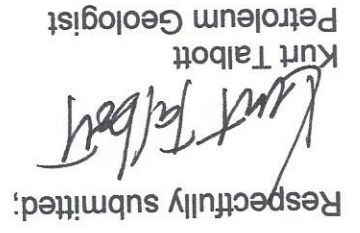 Respectfully submitted;
Kurt Talbott
Kurt Talbott
Petroleum Geologist